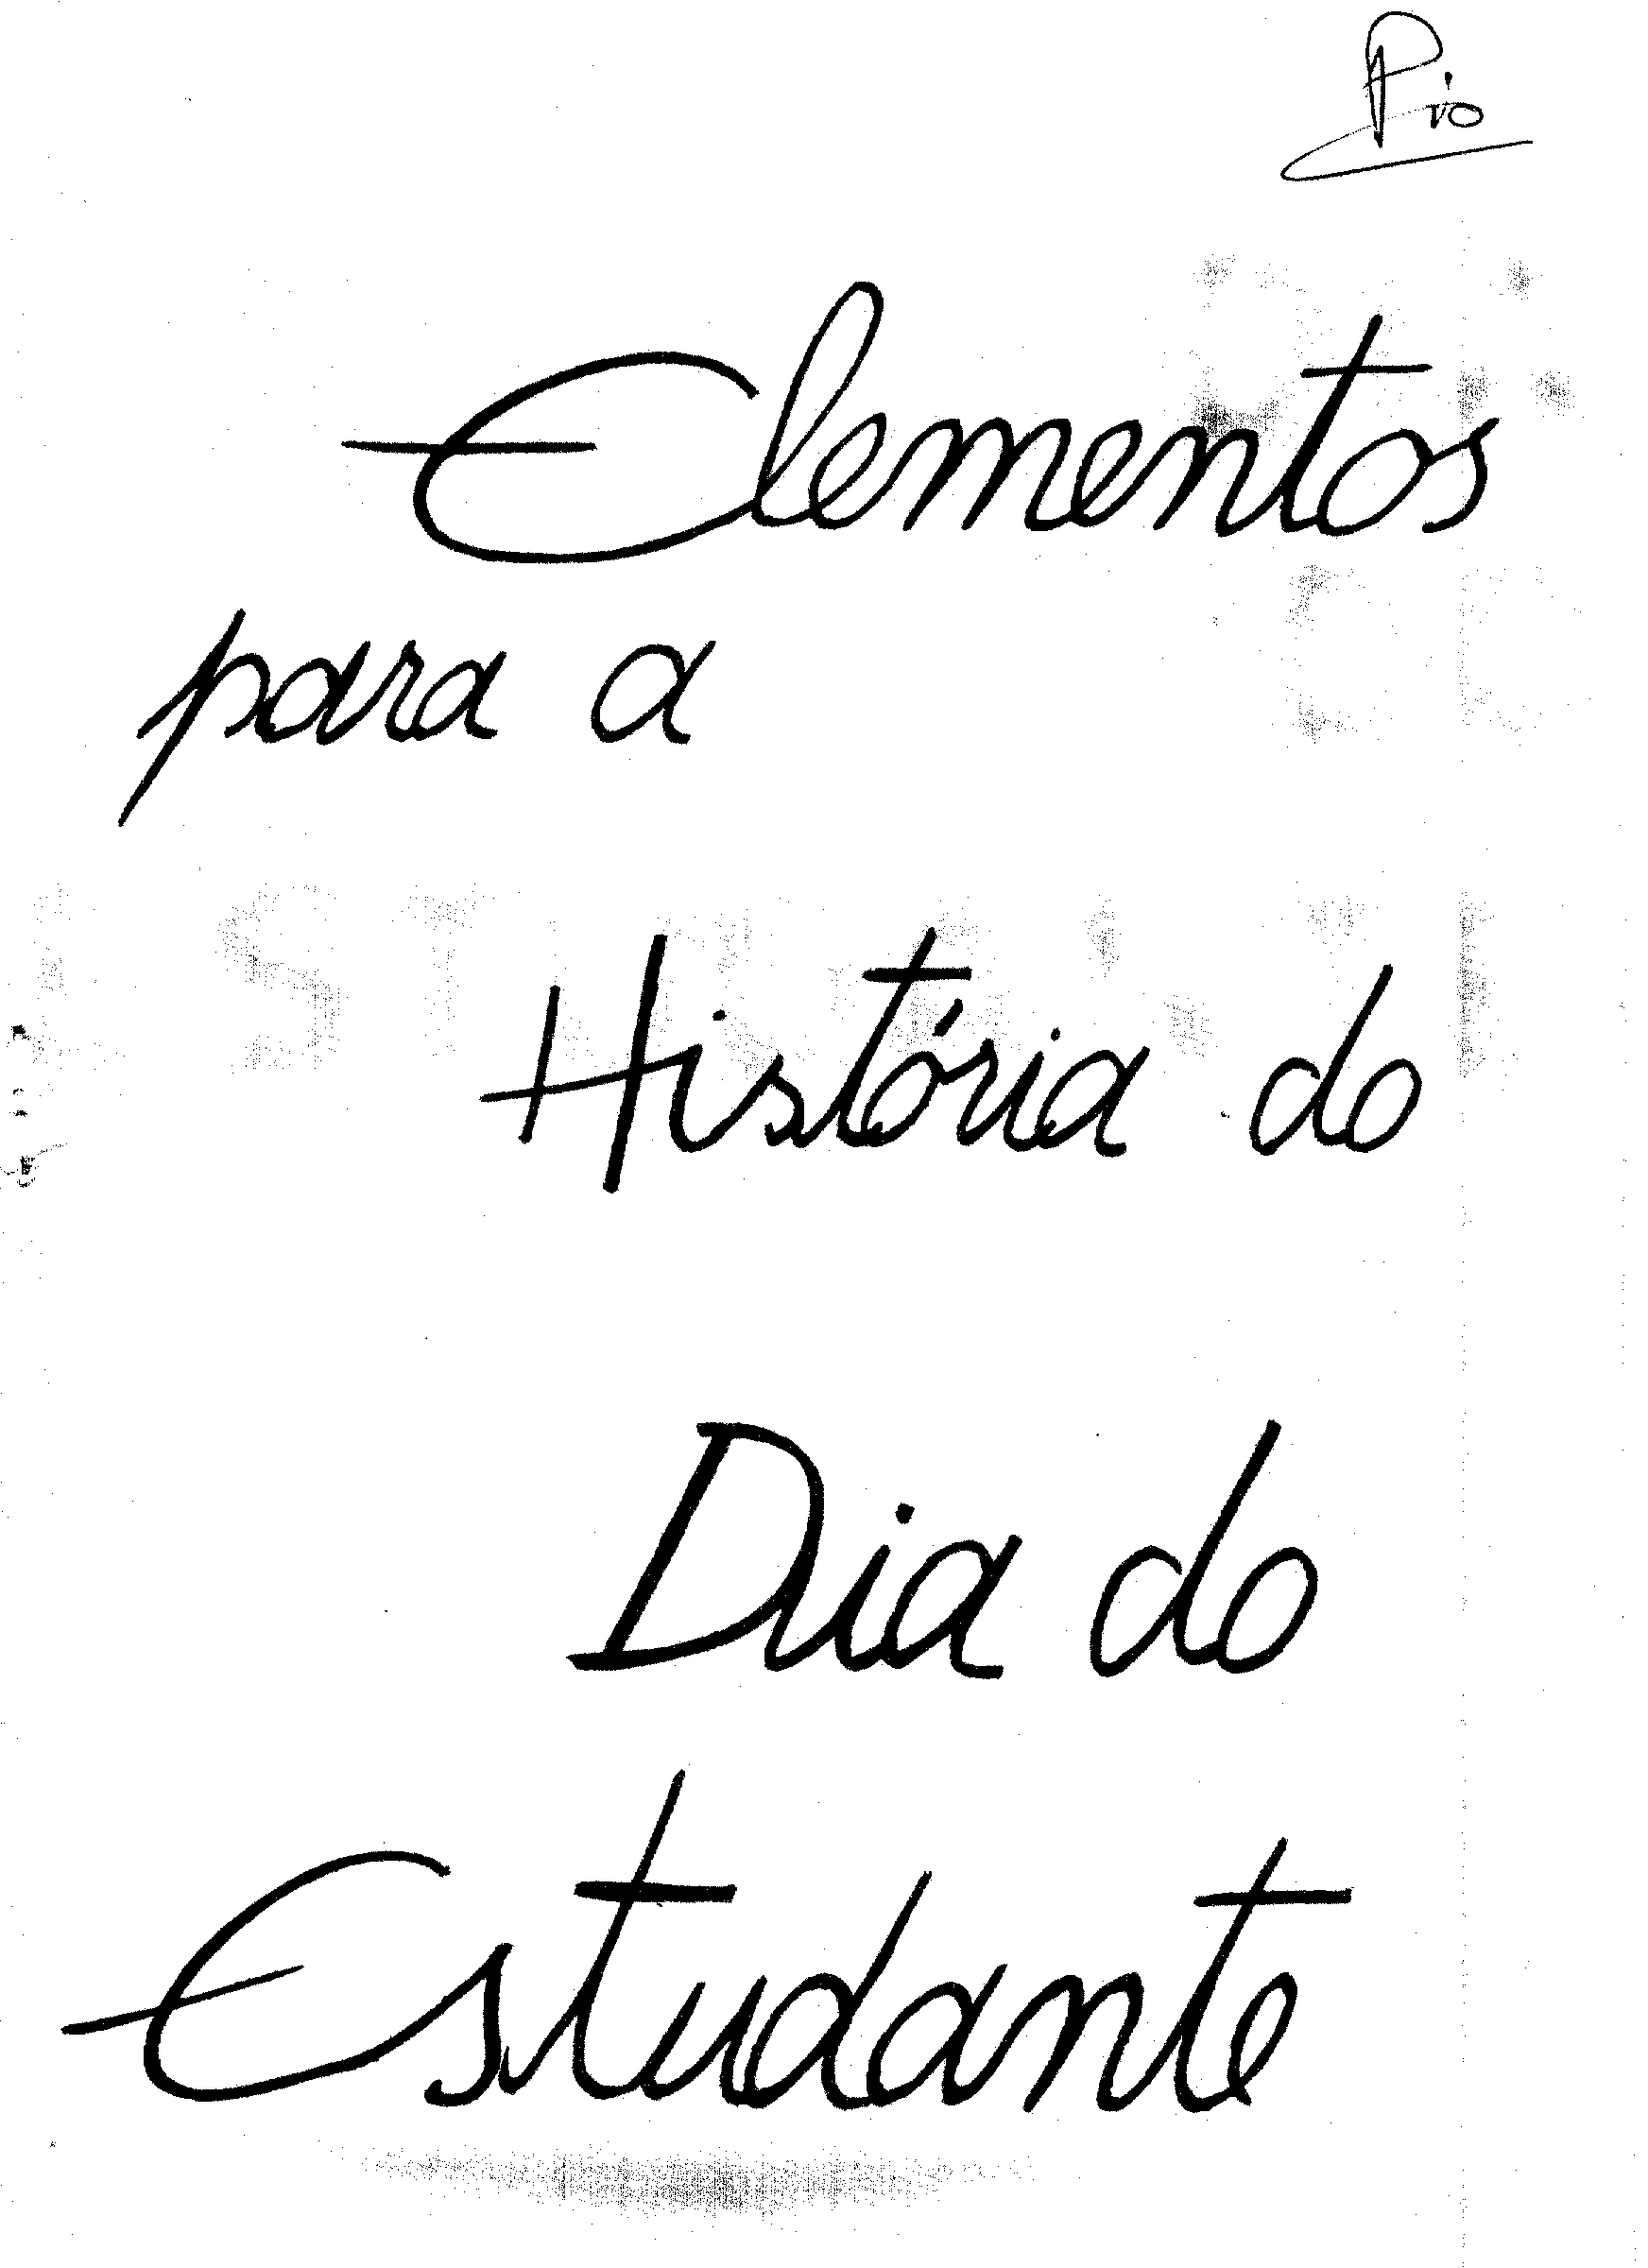 Pio
Elementos
para a
História do
Dia do
Estudante